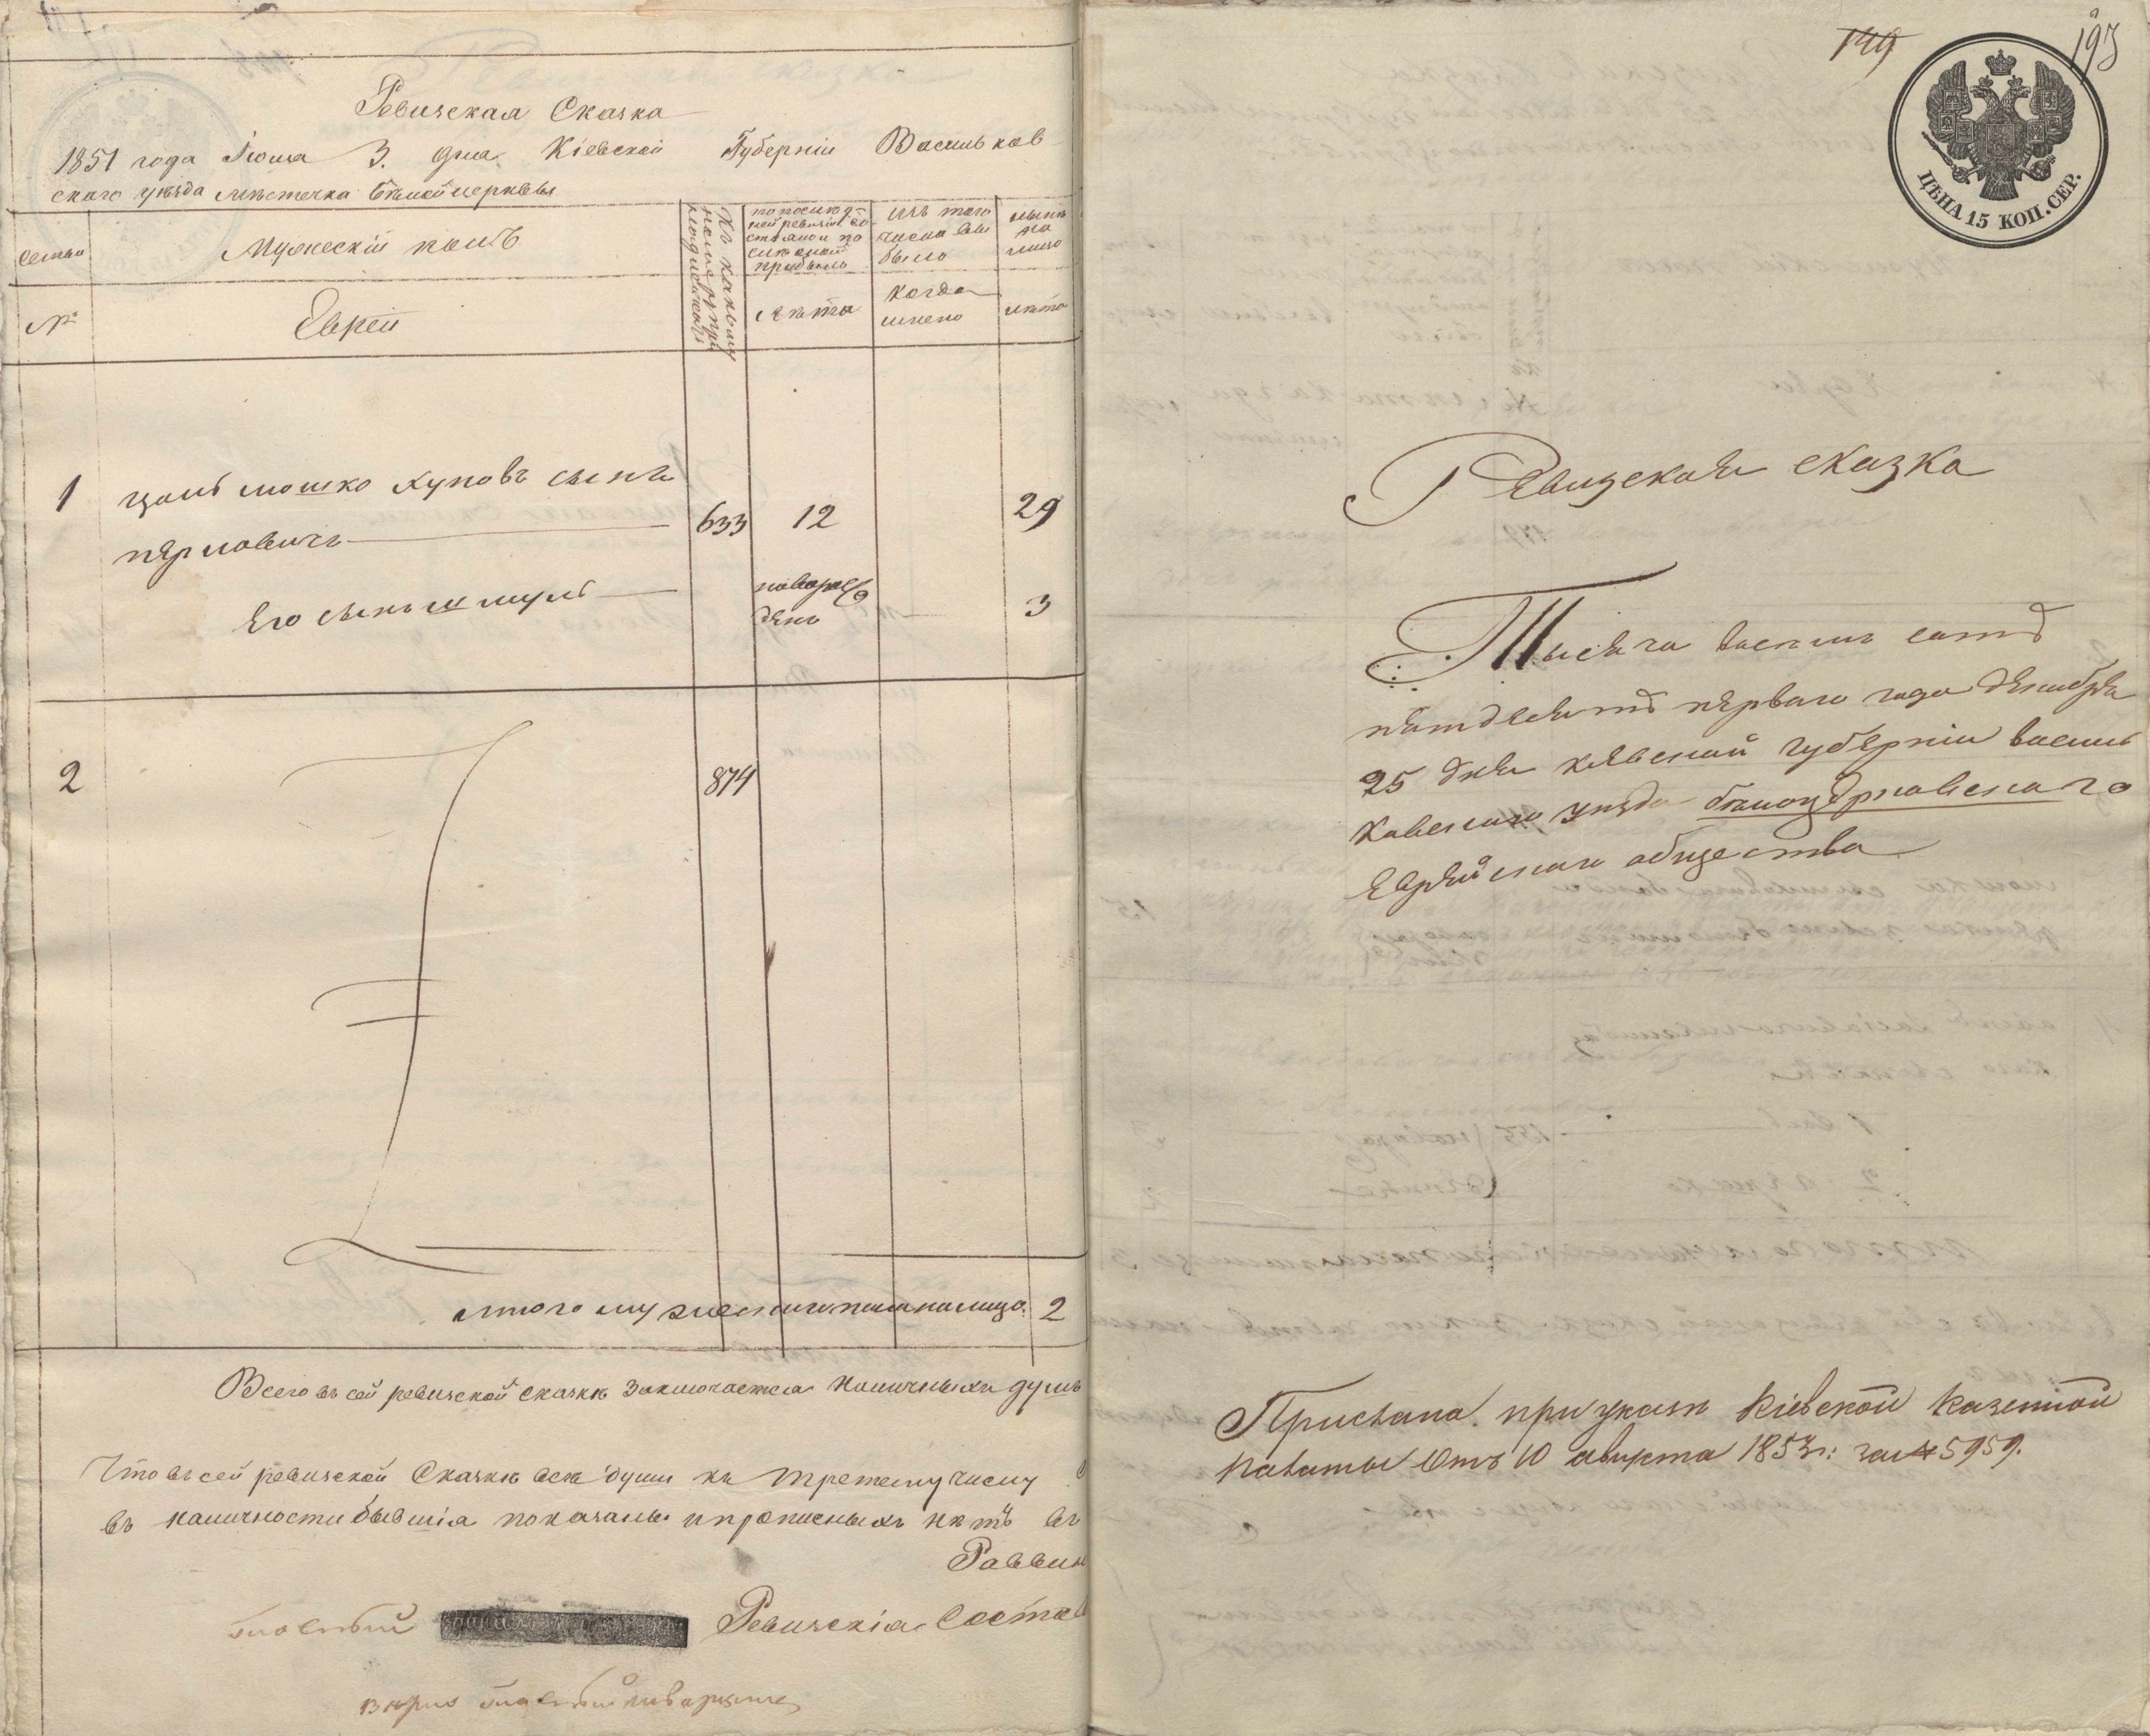 Ревизская Сказка
1851 года Іюня 3. дня Кіевской Губерніи Васильков
скаго уѣзда мѣстечка Бѣлойцерквы
семьи
Мужескій полъ
по послѣд
ней ревизіи со
стояло и по
слѣ оной
прибыло
изъ того
числа вы
было
нынѣ
на
лицо
№
Евреи
лѣта
когда
имено
лѣта
1
мошко Хуновъ сынъ
перловичъ
633
12
29
Его сынъ шмуль
новорож
денъ
3
2
874
итого мужескаго пола на лицо
2
Всего въ сей ревизской сказкѣ Заключается Наличныхъ душъ
Что въ сей ревизской Сказкѣ всѣ души къ третему числу
въ наличности бывшія показаны и прописныхъ нѣтъ въ
Раввин
Ревизскія Состав
149
193
ЦѢНА 15 КОП. СЕР.
Ревизская сказка
Тысяча восемь сотъ
пятдесятъ перваго года декабря
25 дня кіевской губерніи василь
ковскаго уѣзда бѣлоцерковскаго
еврейскаго общества
Прислана при указѣ Кіевской Казенной
Палаты Отъ 10 августа 1853г: за № 5959.